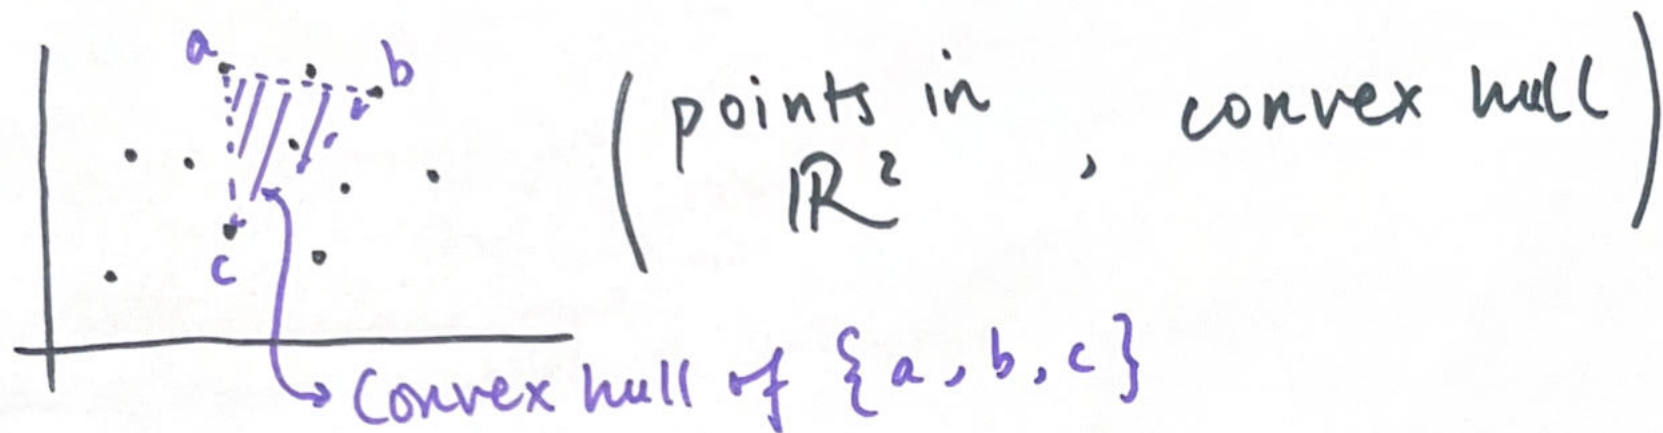 a b
(points in ℝ², convex hull)
c
Convex hull of {a, b, c}